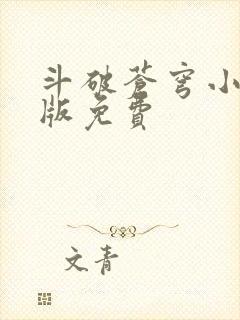 斗破苍穹小
版免費
文青